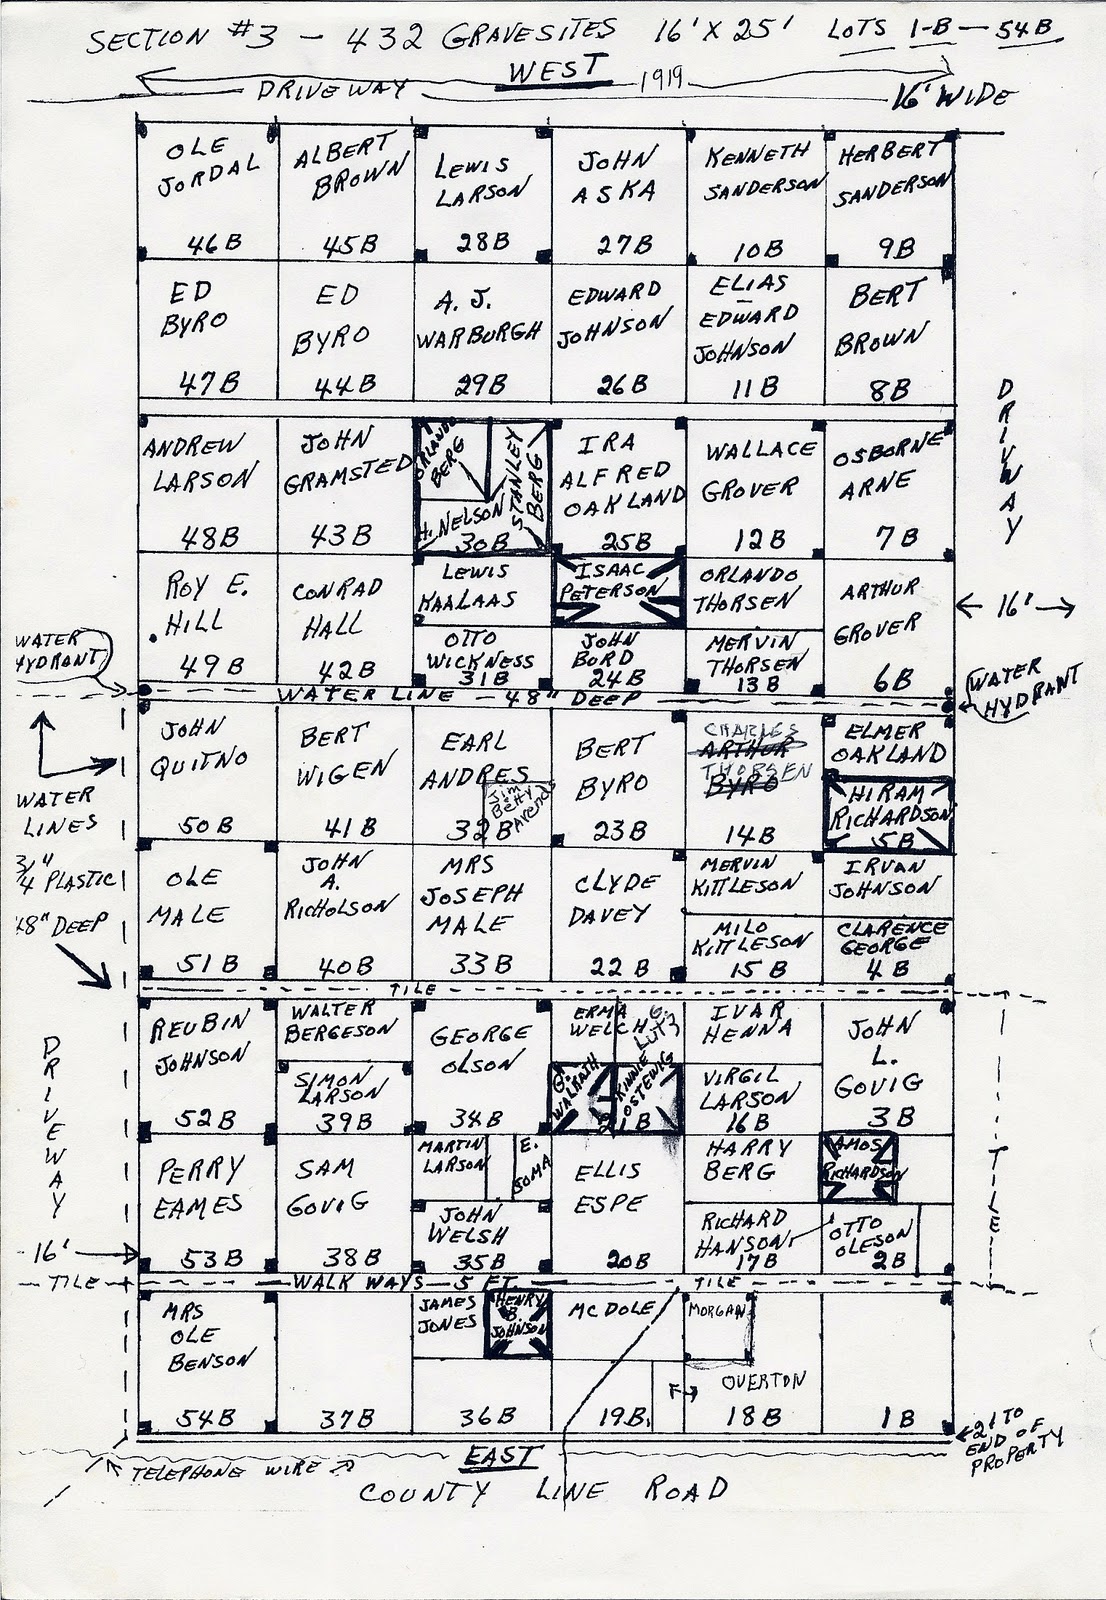 SECTION #3 – 432 GRAVESITES 16' X 25' LOTS 1-B – 54B
WEST
DRIVEWAY
1919
16' WIDE
OLE
JORDAL
46B
ALBERT
BROWN
45B
LEWIS
LARSON
28B
JOHN
ASKA
27B
KENNETH
SANDERSON
10B
HERBERT
SANDERSON
9B
ED
BYRO
47B
ED
BYRO
44B
A. J.
WARBURGH
29B
EDWARD
JOHNSON
26B
ELIAS
EDWARD
JOHNSON
11B
BERT
BROWN
8B
DRIVWAY
ANDREW
LARSON
48B
JOHN
GRAMSTED
43B
ORLANDO
BERG
STANLEY
BERG
H. NELSON
30B
IRA
ALFRED
OAKLAND
25B
WALLACE
GROVER
12B
OSBORNE
ARNE
7B
ROY E.
HILL
49B
CONRAD
HALL
42B
LEWIS
KAALAAS
OTTO
WICKNESS
31B
ISAAC
PETERSON
JOHN
BORD
24B
ORLANDO
THORSEN
MERVIN
THORSEN
13B
ARTHUR
GROVER
6B
16'
WATER
HYDRANT
WATER LINE – 48" DEEP
WATER
HYDRANT
JOHN
QUITNO
50B
BERT
WIGEN
41B
EARL
ANDRES
Jim
Betty
Avends
32B
BERT
BYRO
23B
CHARLES
ARTHUR
THORSEN
BYRO
14B
ELMER
OAKLAND
HIRAM
RICHARDSON
5B
WATER
LINES
3/4" PLASTIC
48" DEEP
OLE
MALE
51B
JOHN
A.
RICHOLSON
40B
MRS
JOSEPH
MALE
33B
CLYDE
DAVEY
22B
MERVIN
KITTLESON
MILO
KITTLESON
15B
IRVAN
JOHNSON
CLARENCE
GEORGE
4B
TILE
DRIVEWAY
REUBIN
JOHNSON
52B
WALTER
BERGESON
SIMON
LARSON
39B
GEORGE
OLSON
34B
ERMA
WELCH
G.
LUTZ
G.
WALRATH
KINNIE
OSTEWIG
21B
IVAR
HENNA
VIRGIL
LARSON
16B
JOHN
L.
GOVIG
3B
TILE
PERRY
EAMES
53B
SAM
GOVIG
38B
MARTIN
LARSON
E.
JOMA
JOHN
WELSH
35B
ELLIS
ESPE
20B
HARRY
BERG
RICHARD
HANSON
17B
AMOS
RICHARDSON
OTTO
OLESON
2B
16'
TILE
WALK WAYS – 5 FT.
TILE
MRS
OLE
BENSON
54B
37B
JAMES
JONES
HENRY
B.
JOHNSON
36B
MCDOLE
19B
MORGAN
F→
OVERTON
18B
1B
21 TO
END OF
PROPERTY
TELEPHONE WIRE
EAST
COUNTY LINE ROAD